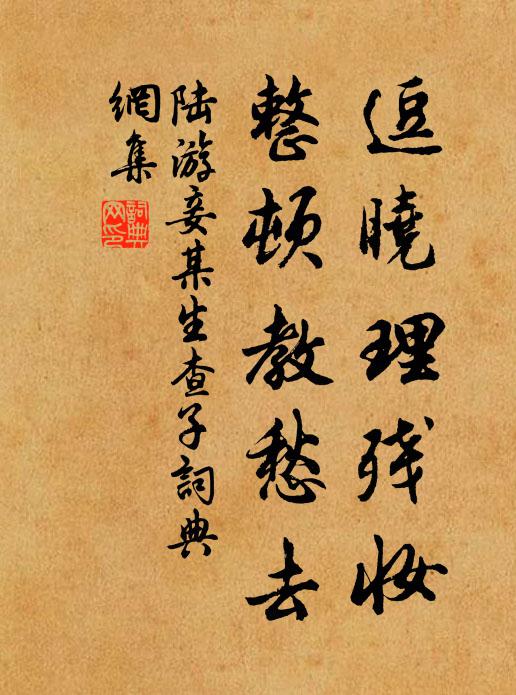 逗曉理残妝
整頓教愁去
陆游妾某生查子詞典
網集
詞典網印